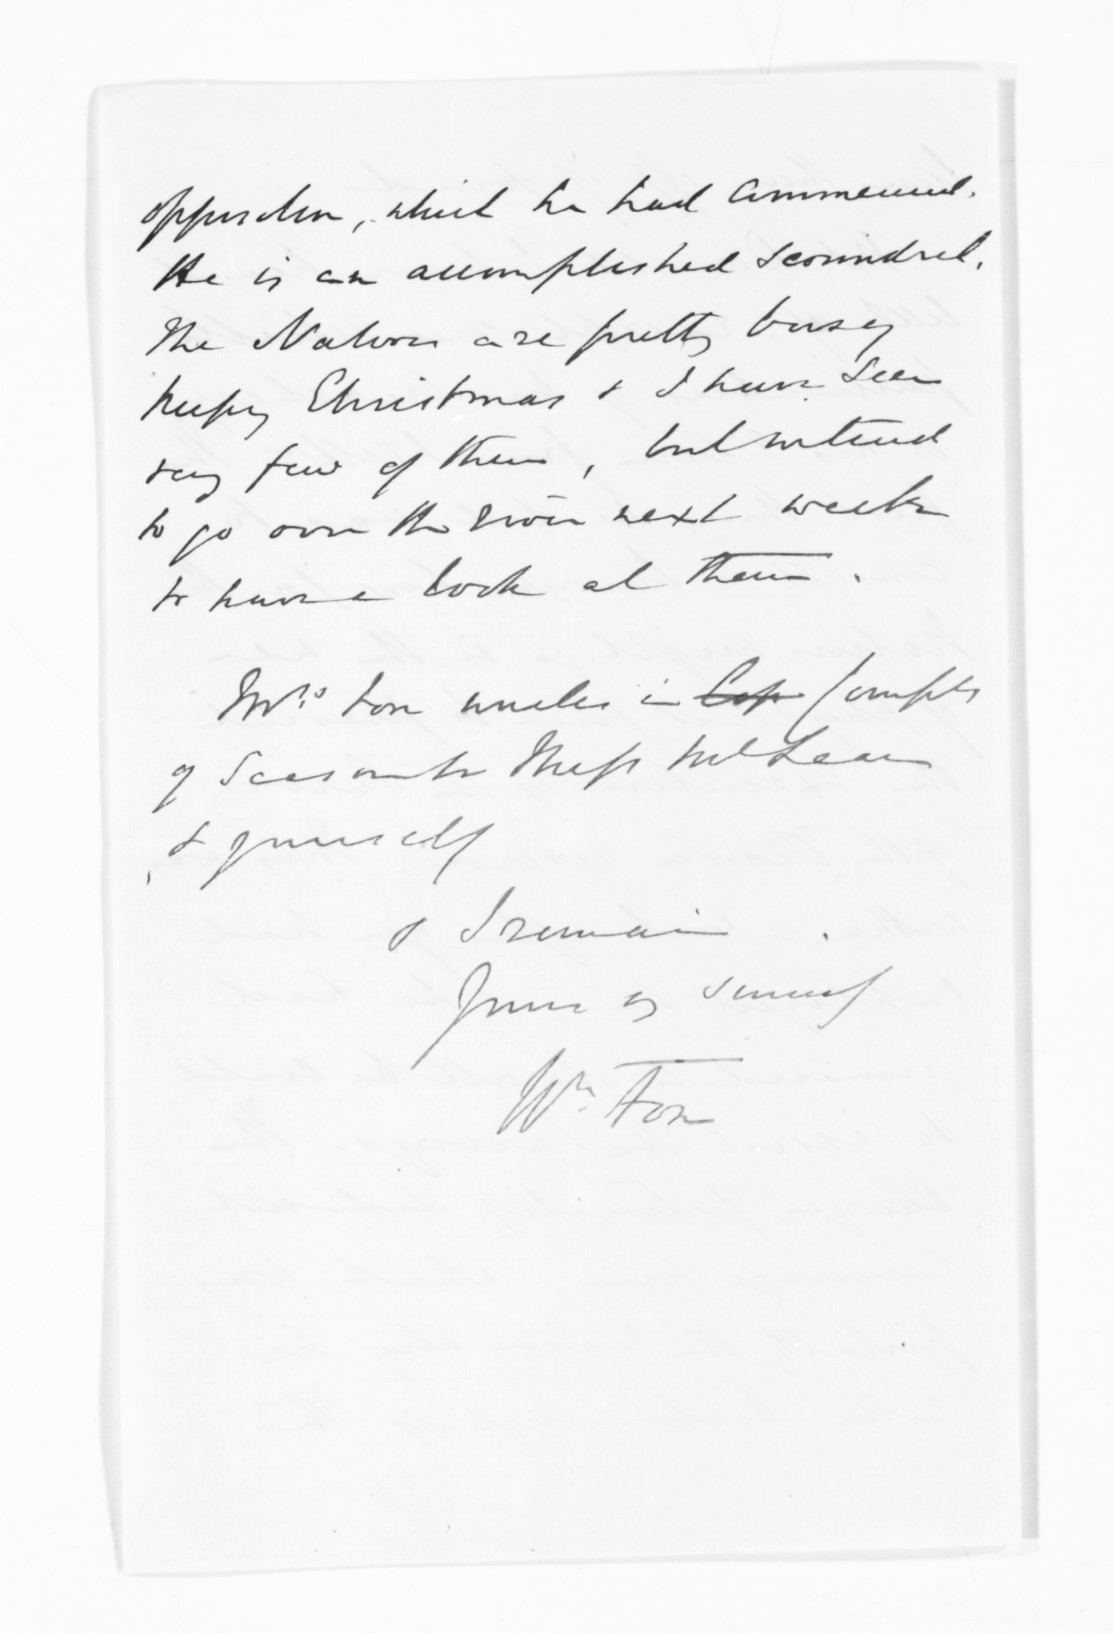 opposition, which he had commenced.
He is an accomplished scoundrel.
The Natives are pretty busy
keeping Christmas & I have seen
very few of them, but intend
to go over the river next week
to have a look at them.
Mrs. Fox unites in Compts
of Season to Miss McLean
& yourself
& I remain
Yours sincerely
Wm Fox